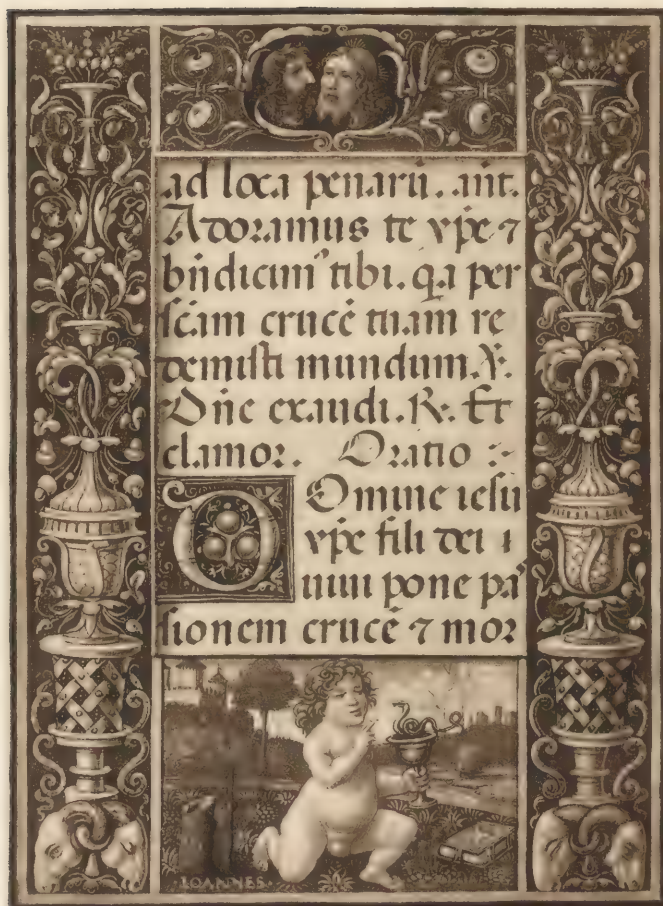 ad loca penarū. añt.
Adoramus te xp̄e ⁊
bñdicim⁹ tibi. q̄a per
sc̄am crucē tuam re
demisti mundum. ℣.
Dñe exaudi. ℟. Et
clamor. Oratio :~
Domine iesu
xp̄e fili dei i
uiui pone pa
sionem crucē ⁊ mor
IOANNES